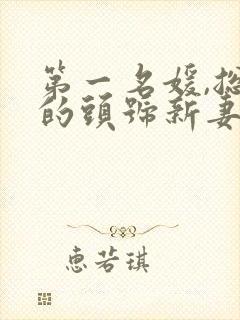 第一名媛,總
的頭號新妻
惠若琪